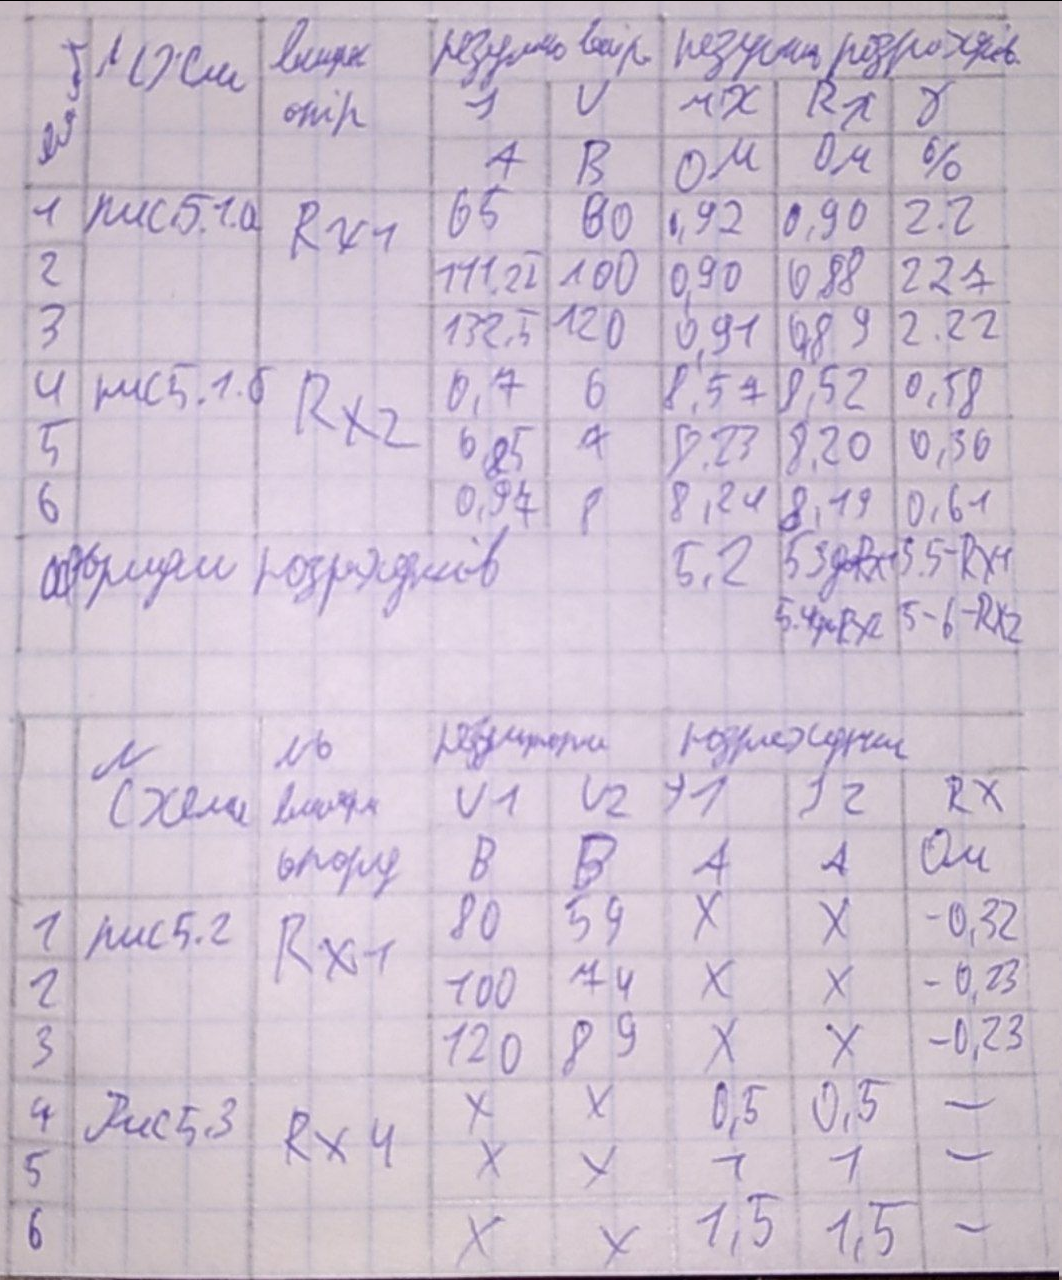 N схем вимір результ вимір. результ розрахунків.
опір I U rX Rx γ
A B Ом Ом %
1 рис.5.1.а Rx1 65 60 0,92 0,90 2.2
2 111.25 100 0,90 0,88 227
3 132,5 120 0,91 0,89 2.22
4 рис5.1.б Rx2 0,7 6 8,57 8,52 0,58
5 0,85 7 8.23 8,20 0,36
6 0,97 8 8,24 8,19 0,61
формули розрахунків 5,2 5.3 для Rx1 5.5-Rx1
5.4для Rx2 5-6-Rx2
N № результати розрахунки
Схема вимір U1 U2 I1 I2 RX
опору B B A A Ом
1 рис5.2 Rx1 80 59 X X -0,32
2 100 74 X X -0,23
3 120 89 X X -0,23
4 Рис5.3 Rx4 X X 0,5 0,5 —
5 X X 1 1 —
6 X X 1,5 1,5 —